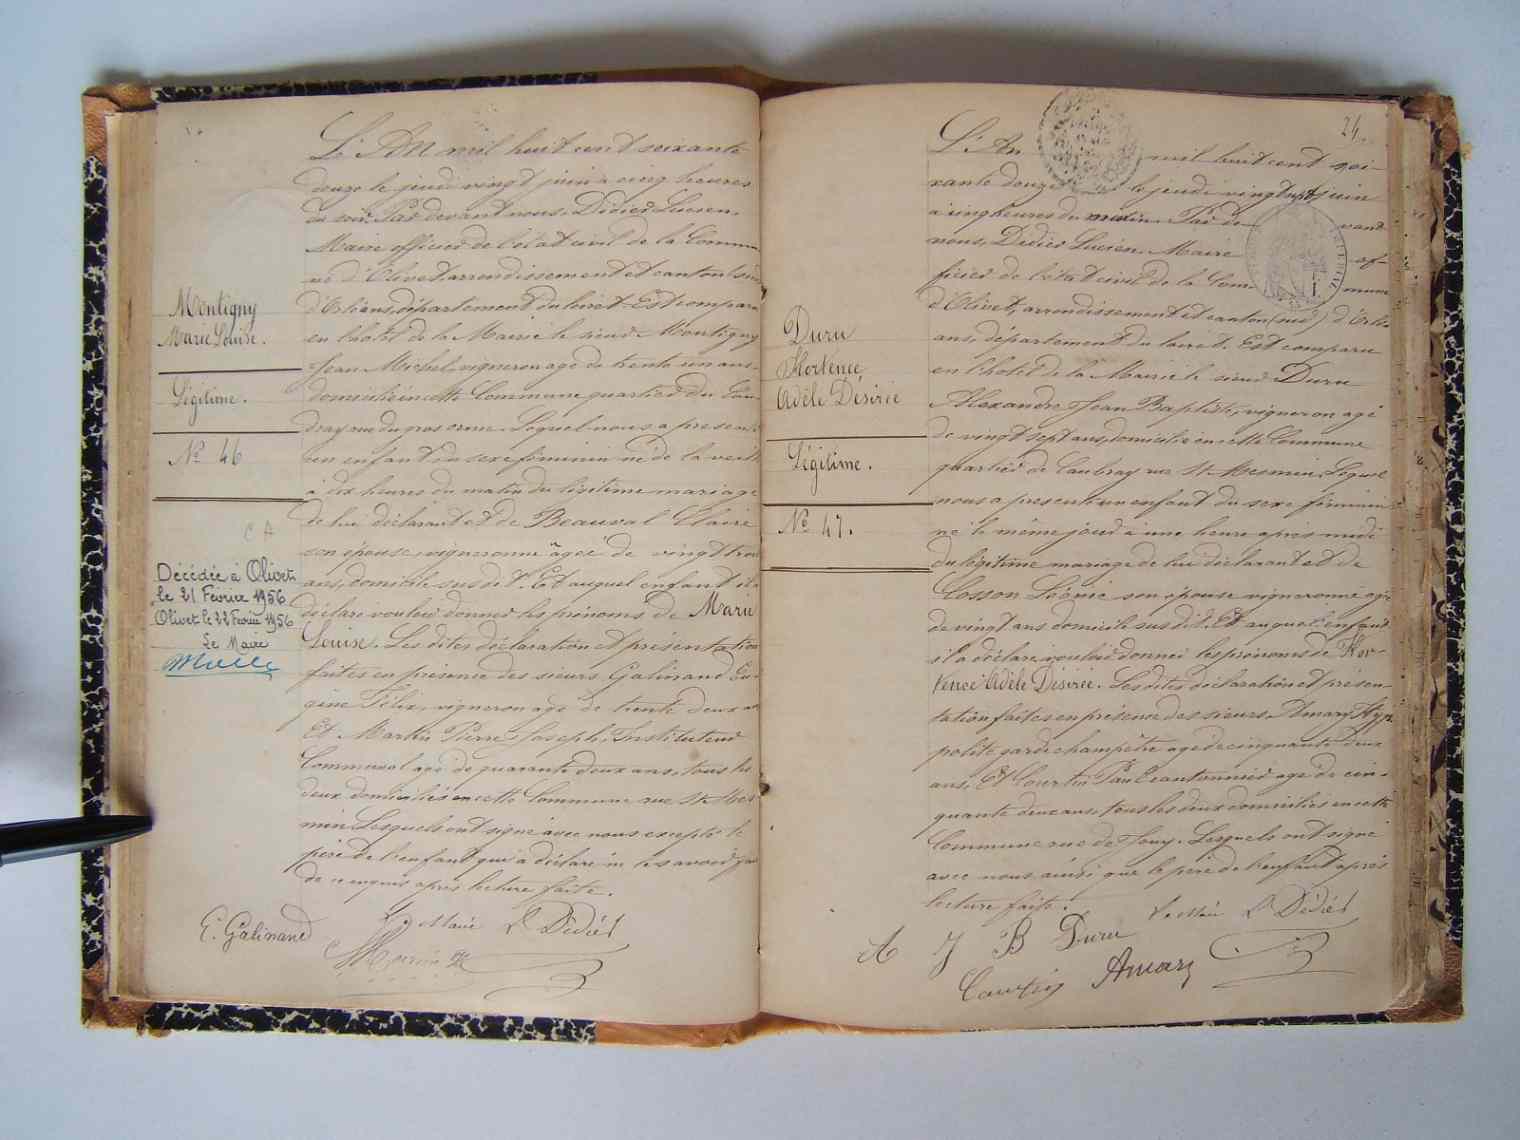 Montigny
Marie Louise.
Légitime.
Nº 46
C A
Décédée à Olivet
le 21 Février 1956
Olivet le 22 Février 1956
Le Maire
L'An mil huit cent soixante
douze le jeudi vingt juin à cinq heures
du soir. Par devant nous, Didier Lucien,
Maire officier de l'état civil de la Commu
ne d'Olivet, arrondissement et canton sud
d'Orléans, département du loiret. Est comparu
en l'hôtel de la Mairie le sieur Montigny
Jean Michel, vigneron agé de trente un ans
domicilié en cette Commune quartier du
rue du gros orme. Lequel nous a présenté
un enfant du sexe féminin né de la veille
à dix heures du matin du légitime mariage
de lui déclarant et de Beauval Claire
son épouse, vigneronne âgée de vingt trois
ans, domicile susdit. Et auquel enfant il a
déclaré vouloir donner les prénoms de Marie
Louise. Les dites déclaration et présentation
faites en présence des sieurs Galinand Eu-
gène Félix, vigneron agé de trente deux ans
Et Martin Pierre Joseph, Instituteur
Communal agé de quarante deux ans, tous les
deux domiciliés en cette Commune rue St Mes
min. Lesquels ont signé avec nous excepté le
père de l'enfant qui a déclaré ne le savoir faire
de ce enquis après lecture faite.
Le Maire L. Didier
E. Galinand
24
Duru
Hortence
Adèle Désirée
Légitime.
Nº 47.
L'An mil huit cent soi-
xante douze le jeudi vingt juin
à cinq heures du Par de vant
nous, Didier Lucien Maire of-
ficier de l'état civil de la Com mune
d'Olivet, arrondissement et canton (sud) d'Orlé
ans, département du loiret. Est comparu
en l'hôtel de la Mairie le sieur Duru
Alexandre Jean Baptiste, vigneron agé
de vingt sept ans, domicilié en cette Commune
quartier de Caubray rue St Mesmin. Lequel
nous a présenté un enfant du sexe féminin
né le même jour à une heure après midi
du légitime mariage de lui déclarant et de
Cosson Léonie son épouse vigneronne agée
de vingt ans domicile susdit. Et auquel enfant
il a déclaré vouloir donner les prénoms de Hor-
tence Adèle Désirée. Les dites déclaration et présen-
tation faites en présence des sieurs Amary Hyp
polite garde champêtre agé de cinquante deux
ans, Et Courtin Paul cantonnier agé de cin-
quante deux ans, tous les deux domiciliés en cette
Commune rue de Lesquels ont signé
avec nous ainsi que le père de l'enfant après
lecture faite.
Le Maire L. Didier
A J B Duru
Courtin Amary